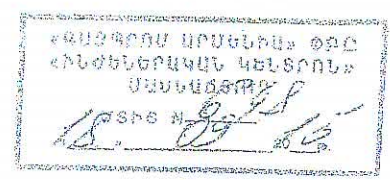 «ԳԱԶՊՐՈՄ ԱՐՄԵՆԻԱ» ՓԲԸ
«ԻՆԺԵՆԵՐԱԿԱՆ ԿԵՆՏՐՈՆ»
ՄԱՍՆԱՃՅՈՒՂ
ՄՏԻՑ N
18. 09 2015